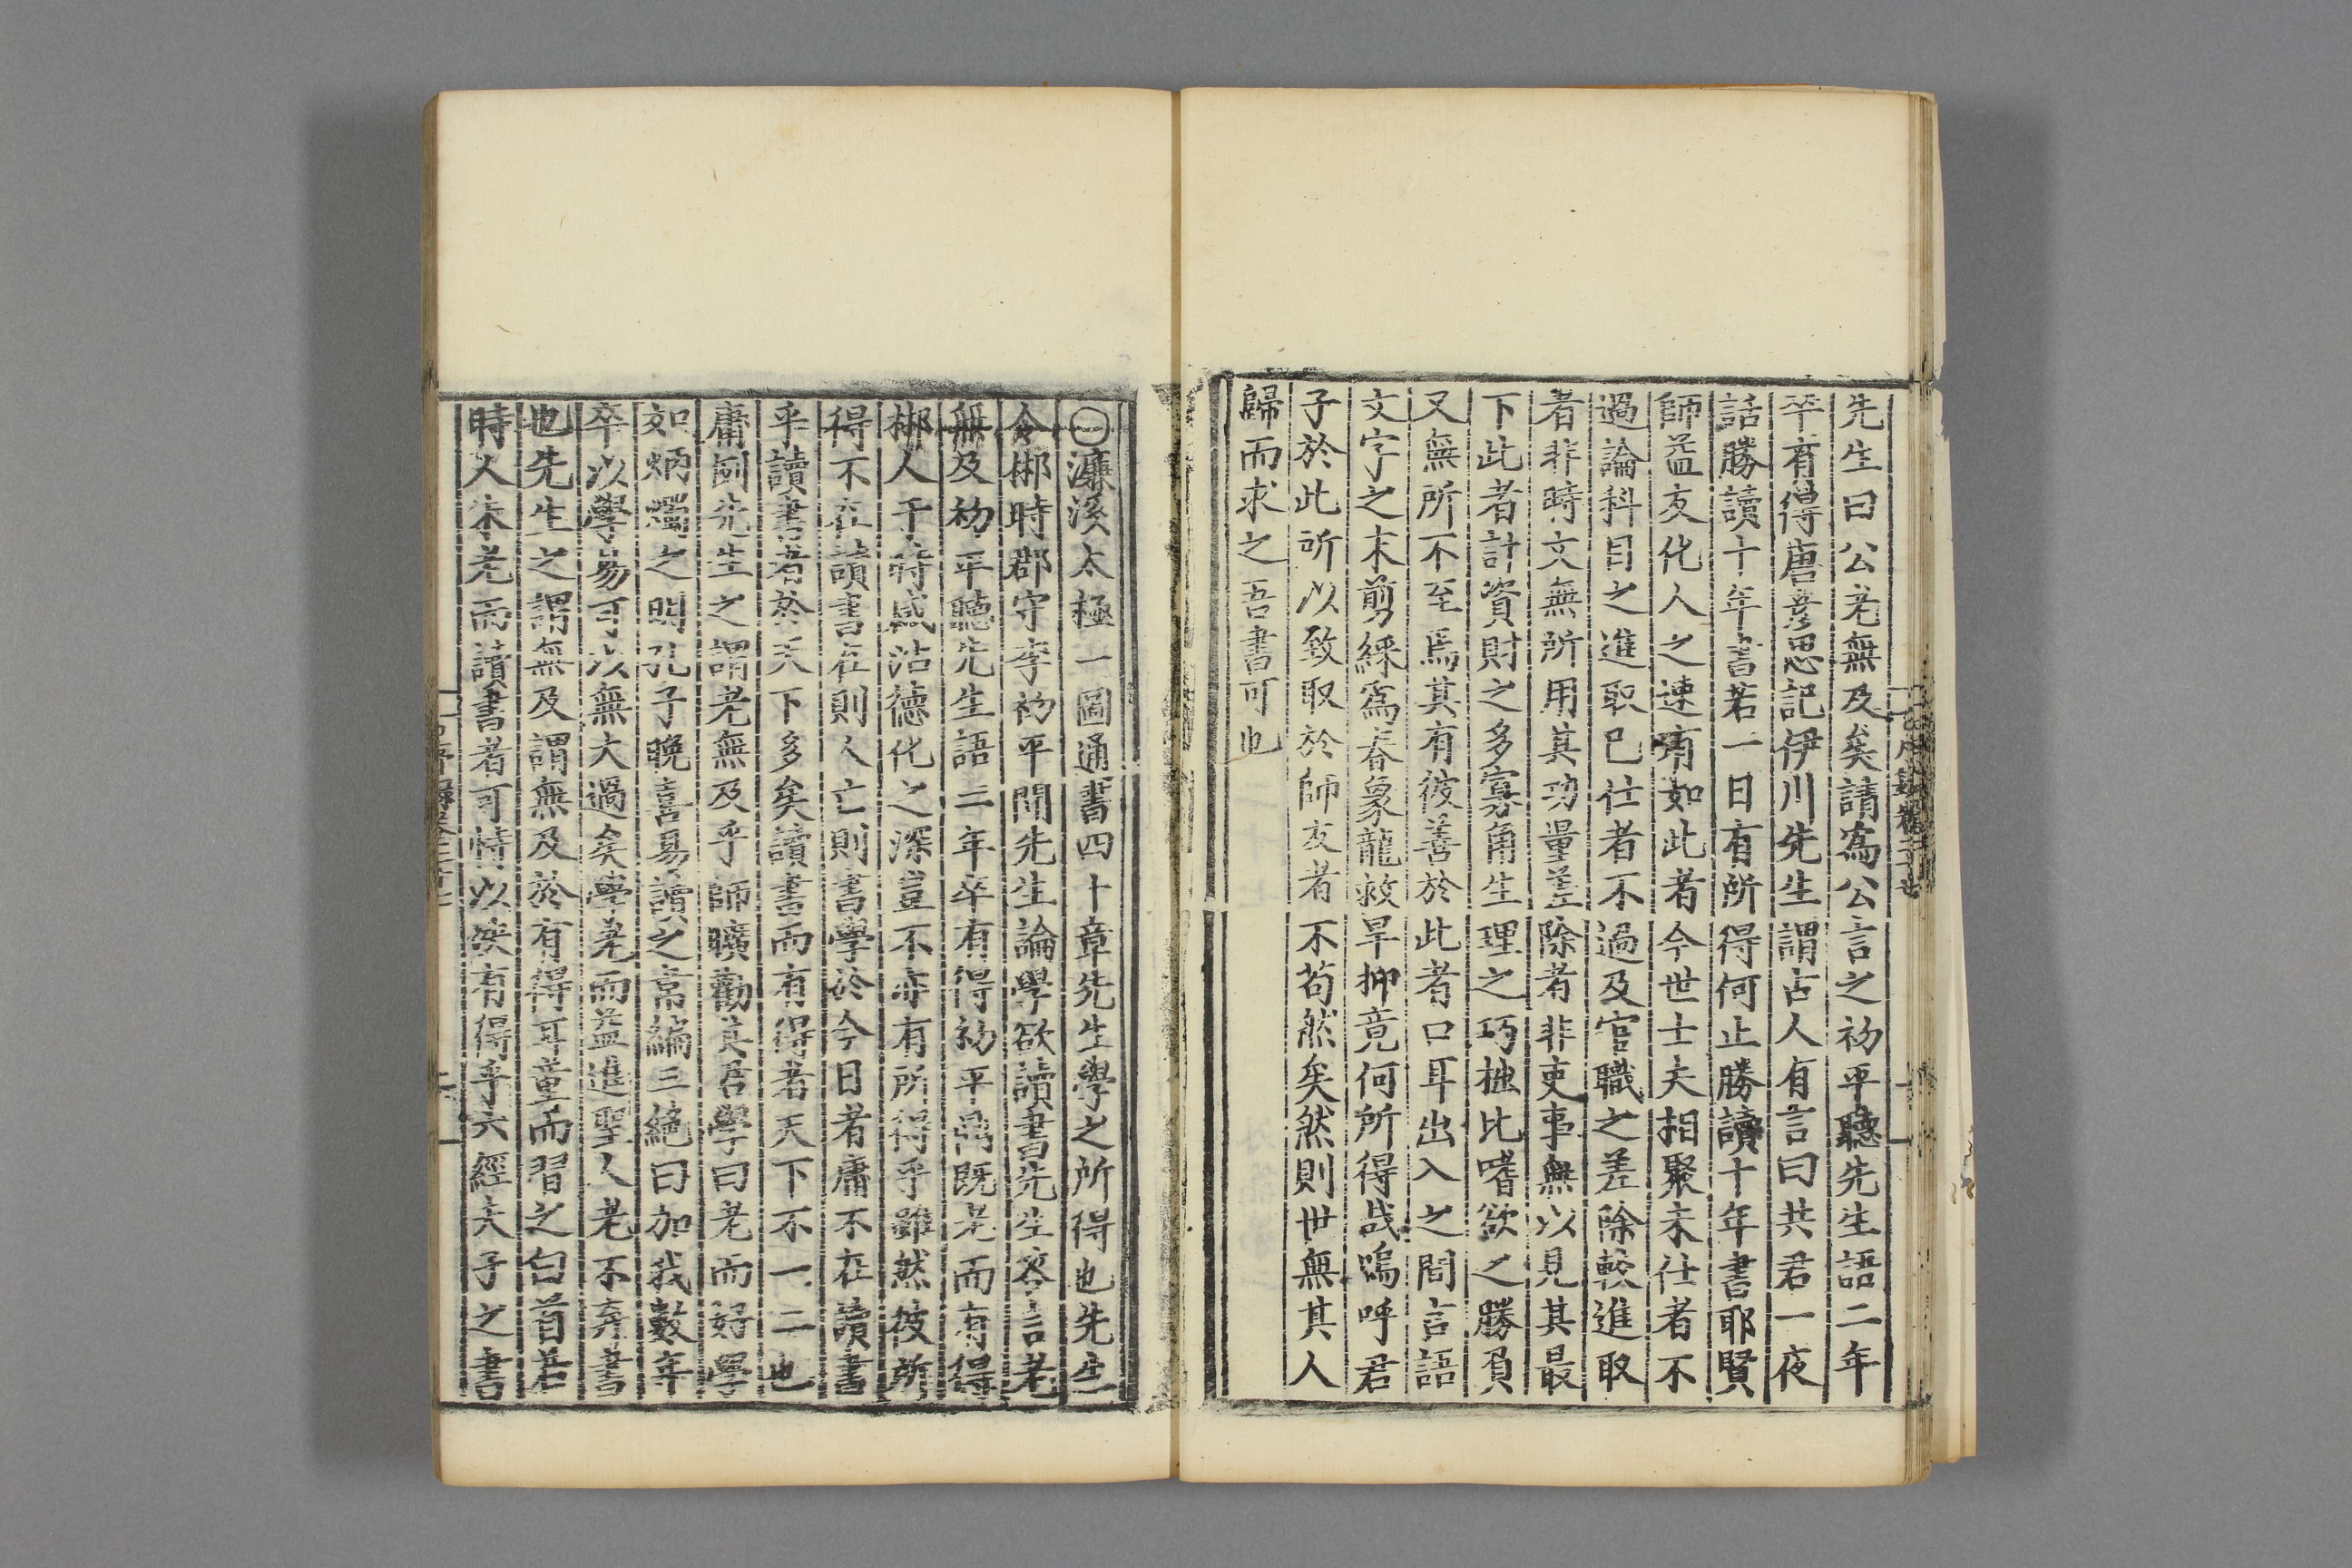 先生曰公老無及矣請爲公言之初平聽先生語二年
卒有得唐彦思記伊川先生謂古人有言曰共君一夜
話勝讀十年書若一日有所得何止勝讀十年書耶賢
師益友化人之速有如此者今世士夫相聚未仕者不
過論科目之進取已仕者不過及官職之差除較進取
者非時文無所用其功量差除者非吏事無以見其最
下此者計資財之多寡角生理之巧拙比嗜欲之勝負
又無所不至焉其有彼善於此者口耳出入之間言語
文字之末剪綵爲春象龍救旱抑竟何所得哉嗚呼君
子於此所以致取於師友者不苟然矣然則世無其人
歸而求之吾書可也
○濂溪太極一圖通書四十章先生學之所得也先生
令郴時郡守李初平聞先生論學欲讀書先生答言老
無及初平聽先生語二年卒有得初平尚既老而有得
郴人于時感沾德化之深豈不亦有所得乎雖然彼所
得不在讀書在則人亡則書學於今日者庸不在讀書
乎讀書者於天下多矣讀書而有得者天下不一二也
庸例先生之謂老無及乎師曠勸其君學曰老而好學
如炳燭之明孔子晚喜易讀之韋編三絶曰加我數年
卒以學易可以無大過矣學老而益進聖人老不弃書
也先生之謂無及謂無及於有得耳童而習之白首若
時人未老而讀書者可恃以必有得乎六經夫子之書